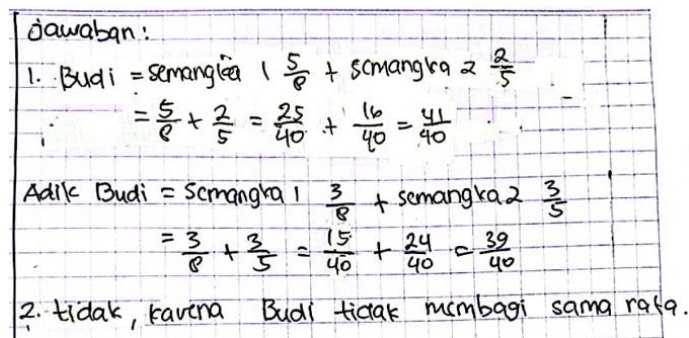 Jawaban:
1. Budi = semangka 1 5/8 + semangka 2 2/5
= 5/8 + 2/5 = 25/40 + 16/40 = 41/40
Adik Budi = Semangka 1 3/8 + semangka 2 3/5
= 3/8 + 3/5 = 15/40 + 24/40 = 39/40
2. tidak, karena Budi tidak membagi sama rata.